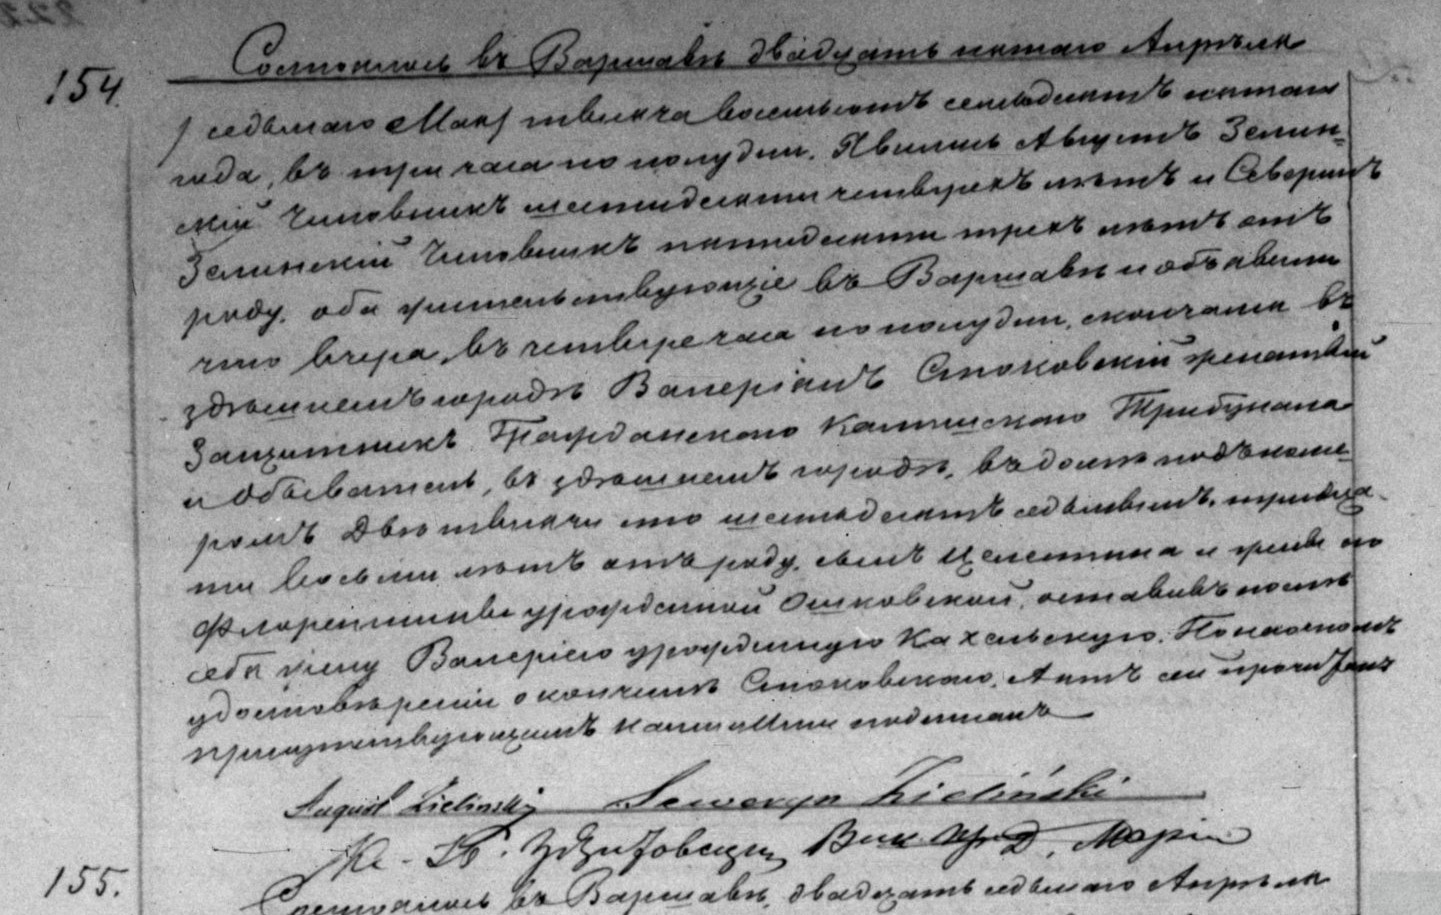 154. Состоялось въ Варшавѣ двадцать пятаго Апрѣля
/ седьмаго Мая / тысяча восемьсотъ семьдесятъ пятаго
года, въ три часа по полудни. Явились Августъ Зелин-
скій Чиновникъ шестидесяти четырехъ лѣтъ и Северинъ
Зелинскій Чиновникъ пятидесяти трехъ лѣтъ отъ
роду, оба жительствующіе въ Варшавѣ и объявили
что вчера, въ четыре часа по полудни, скончался въ
здѣшнемъ городѣ Валеріянъ Стоковскій
Защитникъ Гражданскаго Калишскаго Трибунала
и Обыватель, въ здѣшнемъ городѣ, въ домѣ подъ номе-
ромъ Двѣ тысячи сто шестьдесятъ седьмымъ, тридца-
ти восьми лѣтъ отъ роду, сынъ Целестина и жены его
Флорентины урожденной Ошковской, оставивъ послѣ
себя жену Валерію урожденную Кахельскую. По наочномъ
удостовѣреніи о кончинѣ Стоковскаго, Актъ сей прочитанъ
присутствующимъ нами и ими подписанъ
August Zieliński Seweryn Zieliński
155. Состоялось въ Варшавѣ, двадцать седьмаго Апрѣля